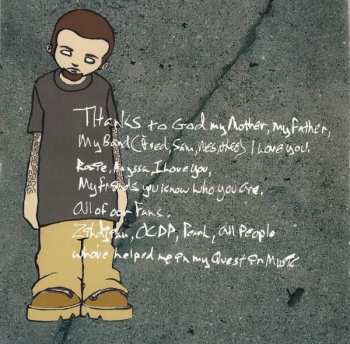 Thanks to God my Mother, my Father,
My Band (Fred, Sam, Wes, other) I love you.
Rosie, Alyssa, I love you,
My friends you know who you are,
All of our Fans.
Zildjian, OCDP, Pearl, all People
who've helped me in my Quest for Music